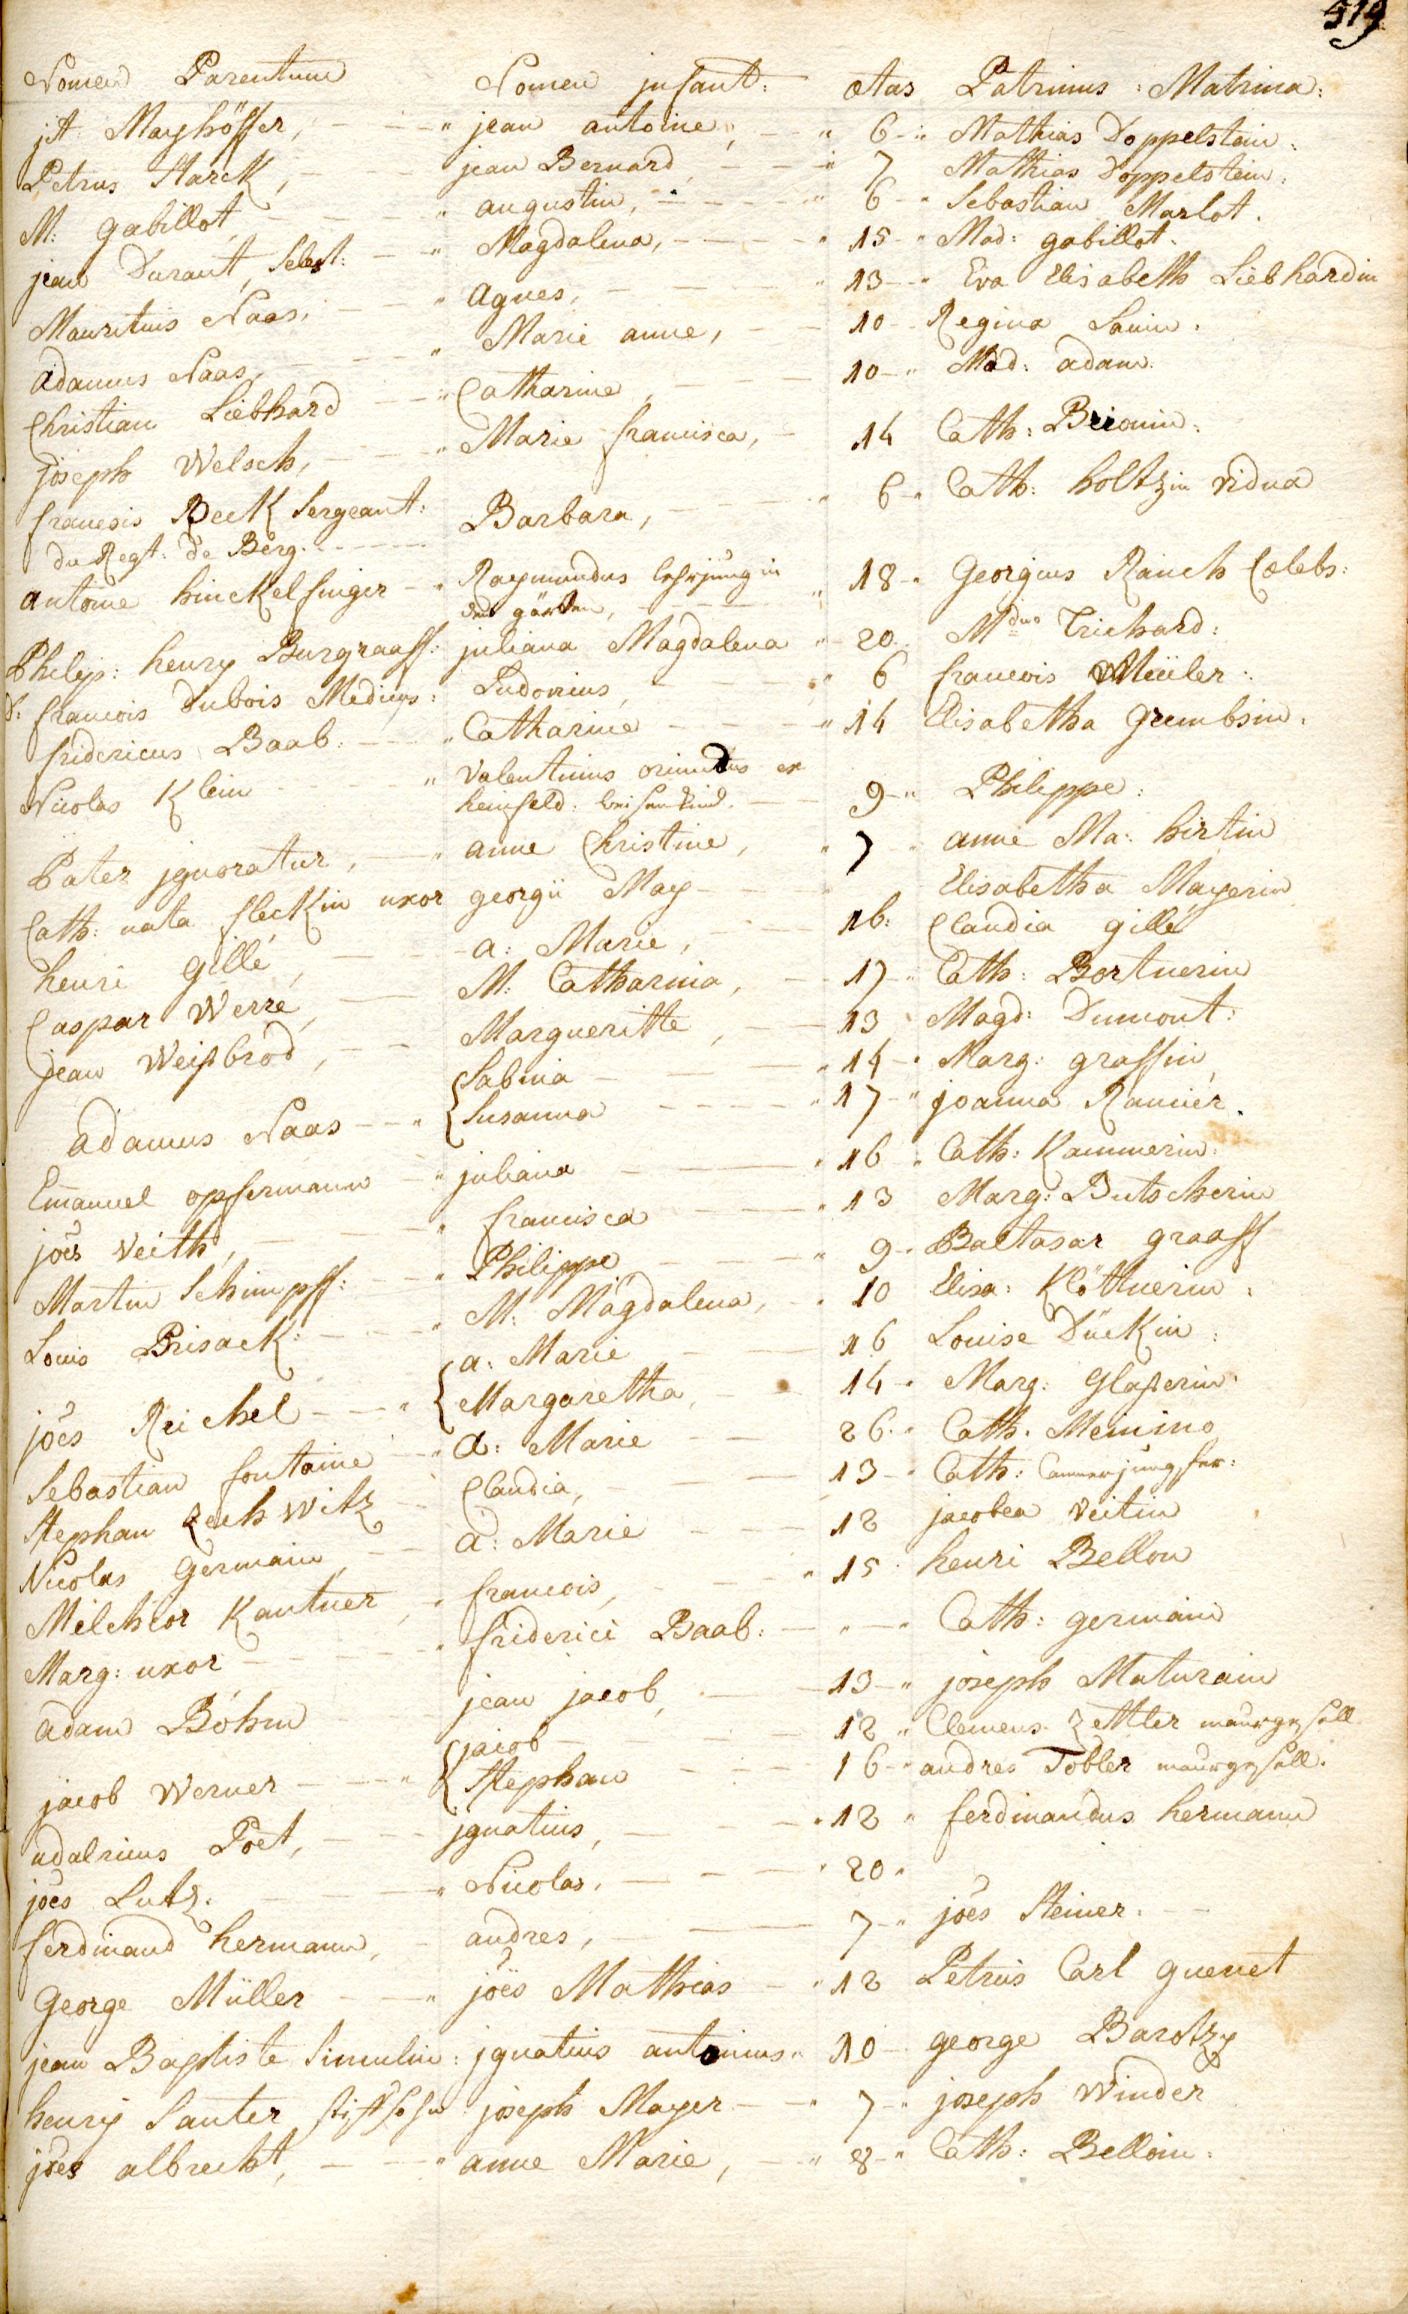 519
Nomen Parentum Nomen jnfant: ætas Patrinus : Matrina :
jt: Mayhöffer, jean antoine, 6 Mathias Doppelstein :
Petrus Starck, jean Bernard, 7 Mathias Doppelstein.
M: gabillot, augustin, 6 Sebastian Marlot.
jean Durant, Selest: Magdalena, 15 Mad: gabillot.
Mauritius Naas, agnes, 13 Eva Elisabeth Liebhardin
adamus Naas, Marie anne, 10 Regina Sauin.
Christian Liebhard Catharine, 10 Mad: adam.
joseph Welsch, Marie francisca, 14 Cath: Brionin.
francois Beck Sergeant: Barbara, 6 Cath: holtzin vidua
du Regt: de Berg.
antoine hinckelfinger Raymundus lehrjung in 18 Georgius Rauch Cælebs:
den gärten,
Philip: henry Burgraaff: juliana Magdalena 20 Mdme Trichard:
D: francois Dubois Medicus: Ludovicus, 6 francois Müller:
fridericus Baab. Catharine 14 Elisabetha Grembsin.
Nicolas Klein Valentinus oriundus ex
heinfeld: weisenkind. 9 Philippe:
Pater jgnoratur, anne Christine, 7 anne Ma: hirtin
Cath: nata fleckin uxor georgii May Elisabetha Mayerin
henri Gillé, a: Marie, 16: Claudia gillé
Caspar Werré, M: Catharina, 17 Cath: Bortnerin
jean Weisbrod, Margueritte, 13 Magd: Dumont:
adamus Naas Sabina 14 Marg: graffin,
Susanna 17 joanna Rannier.
Emanuel opfermann juliana 16 Cath: Kammerin:
joês Veith, francisca 13 Marg: Butscherin
Martin Schimpff: Philippe 9 Baltasar graaff
Louis Brisack: M: Magdalena, 10 Elisa: Klöttnerin :
joês Reichel a: Marie 16 Louise Dückin :
Margaretha, 14 Marg: Glaserin.
Sebastian fontaine a: Marie 26 Cath. Meinino
Stephan Zechwitz Claudia, 13 Cath: Cammerjungfer:
Nicolas Germain, a: Marie 12 jacobea Veitin
Melchior Kantner, francois, 15 henri Bellon
Marg: uxor friderici Baab: Cath: germain
adam Böhm jean jacob, 13 joseph Maturain
jacob Werner jacob 12 Clemens Zettler maurgesell
Stephan 16 andres Tobler maurgesell.
udalricus Poet, jgnatius, 12 ferdinandus hermann
joês Lutz. Nicolas, 20
ferdinand hermann, andres, 7 joês Steiner.
George Müller joês Mathias 12 Petrus Carl guenet
jean Baptiste Simulin: jgnatius antonius 10 george Barotzy
henry Sauter stiffsohn joseph Mayer 7 joseph Winder
joês albrecht, anne Marie, 8 Cath: Belloin.